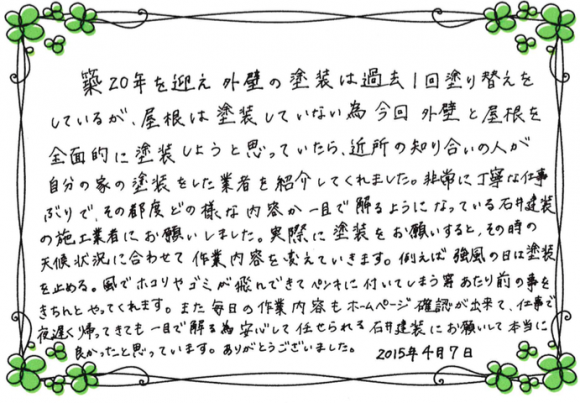 築20年を迎え 外壁の塗装は過去1回塗り替えを
しているが、屋根は塗装していない為 今回 外壁と屋根を
全面的に塗装しようと思っていたら、近所の知り合いの人が
自分の家の塗装をした業者を紹介してくれました。非常に丁寧な仕事
ぶりで、その都度どの様な内容か一目で解るようになっている石井建装
の施工業者にお願いしました。実際に塗装をお願いすると、その時の
天候状況に合わせて作業内容を変えていきます。例えば強風の日は塗装
を止める。風でホコリやゴミが飛んできてペンキに付いてしまう等あたり前の事を
きちんとやってくれます。また毎日の作業内容もホームページ確認が出来て、仕事で
夜遅く帰ってきても一目で解る為安心して任せられる石井建装にお願いして本当に
良かったと思っています。ありがとうございました。 2015年4月7日